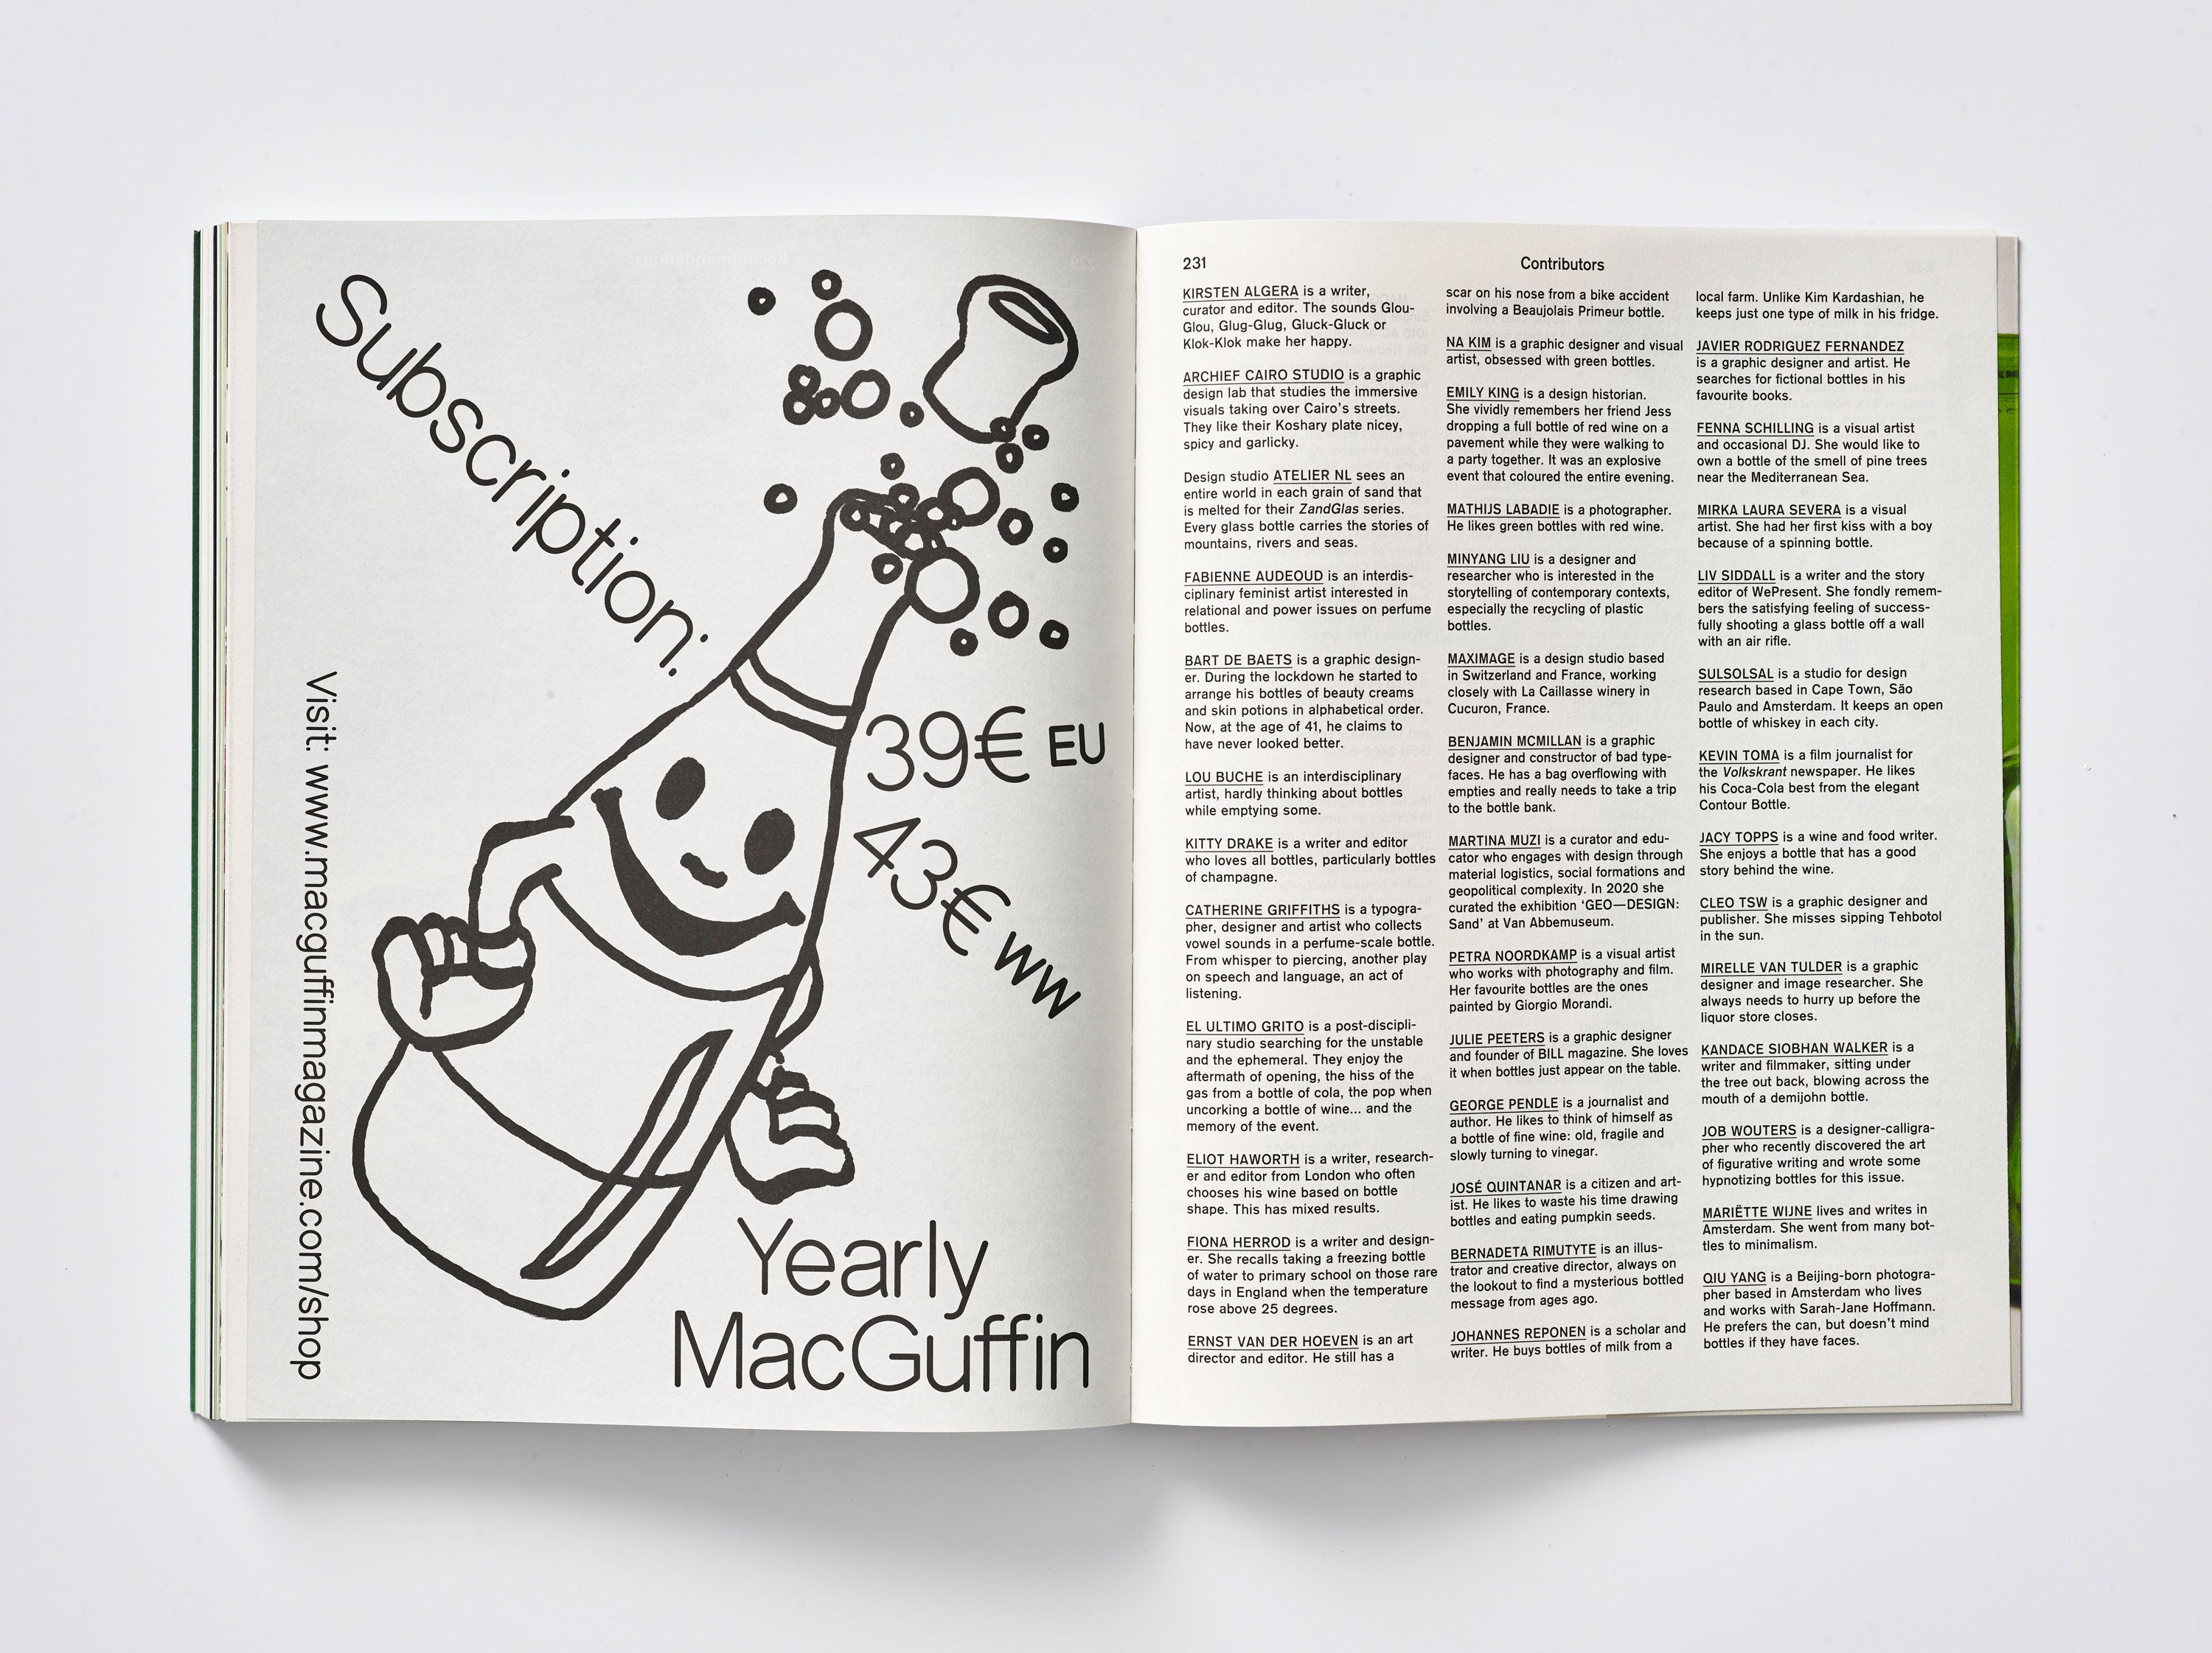 Subscription:
39€ EU
43€ WW
Yearly
MacGuffin
Visit: www.macguffinmagazine.com/shop
231
Contributors
KIRSTEN ALGERA is a writer,
curator and editor. The sounds Glou-
Glou, Glug-Glug, Gluck-Gluck or
Klok-Klok make her happy.
ARCHIEF CAIRO STUDIO is a graphic
design lab that studies the immersive
visuals taking over Cairo's streets.
They like their Koshary plate nicey,
spicy and garlicky.
Design studio ATELIER NL sees an
entire world in each grain of sand that
is melted for their ZandGlas series.
Every glass bottle carries the stories of
mountains, rivers and seas.
FABIENNE AUDEOUD is an interdis-
ciplinary feminist artist interested in
relational and power issues on perfume
bottles.
BART DE BAETS is a graphic design-
er. During the lockdown he started to
arrange his bottles of beauty creams
and skin potions in alphabetical order.
Now, at the age of 41, he claims to
have never looked better.
LOU BUCHE is an interdisciplinary
artist, hardly thinking about bottles
while emptying some.
KITTY DRAKE is a writer and editor
who loves all bottles, particularly bottles
of champagne.
CATHERINE GRIFFITHS is a typogra-
pher, designer and artist who collects
vowel sounds in a perfume-scale bottle.
From whisper to piercing, another play
on speech and language, an act of
listening.
EL ULTIMO GRITO is a post-discipli-
nary studio searching for the unstable
and the ephemeral. They enjoy the
aftermath of opening, the hiss of the
gas from a bottle of cola, the pop when
uncorking a bottle of wine... and the
memory of the event.
ELIOT HAWORTH is a writer, research-
er and editor from London who often
chooses his wine based on bottle
shape. This has mixed results.
FIONA HERROD is a writer and design-
er. She recalls taking a freezing bottle
of water to primary school on those rare
days in England when the temperature
rose above 25 degrees.
ERNST VAN DER HOEVEN is an art
director and editor. He still has a
scar on his nose from a bike accident
involving a Beaujolais Primeur bottle.
NA KIM is a graphic designer and visual
artist, obsessed with green bottles.
EMILY KING is a design historian.
She vividly remembers her friend Jess
dropping a full bottle of red wine on a
pavement while they were walking to
a party together. It was an explosive
event that coloured the entire evening.
MATHIJS LABADIE is a photographer.
He likes green bottles with red wine.
MINYANG LIU is a designer and
researcher who is interested in the
storytelling of contemporary contexts,
especially the recycling of plastic
bottles.
MAXIMAGE is a design studio based
in Switzerland and France, working
closely with La Caillasse winery in
Cucuron, France.
BENJAMIN MCMILLAN is a graphic
designer and constructor of bad type-
faces. He has a bag overflowing with
empties and really needs to take a trip
to the bottle bank.
MARTINA MUZI is a curator and edu-
cator who engages with design through
material logistics, social formations and
geopolitical complexity. In 2020 she
curated the exhibition 'GEO—DESIGN:
Sand' at Van Abbemuseum.
PETRA NOORDKAMP is a visual artist
who works with photography and film.
Her favourite bottles are the ones
painted by Giorgio Morandi.
JULIE PEETERS is a graphic designer
and founder of BILL magazine. She loves
it when bottles just appear on the table.
GEORGE PENDLE is a journalist and
author. He likes to think of himself as
a bottle of fine wine: old, fragile and
slowly turning to vinegar.
JOSÉ QUINTANAR is a citizen and art-
ist. He likes to waste his time drawing
bottles and eating pumpkin seeds.
BERNADETA RIMUTYTE is an illus-
trator and creative director, always on
the lookout to find a mysterious bottled
message from ages ago.
JOHANNES REPONEN is a scholar and
writer. He buys bottles of milk from a
local farm. Unlike Kim Kardashian, he
keeps just one type of milk in his fridge.
JAVIER RODRIGUEZ FERNANDEZ
is a graphic designer and artist. He
searches for fictional bottles in his
favourite books.
FENNA SCHILLING is a visual artist
and occasional DJ. She would like to
own a bottle of the smell of pine trees
near the Mediterranean Sea.
MIRKA LAURA SEVERA is a visual
artist. She had her first kiss with a boy
because of a spinning bottle.
LIV SIDDALL is a writer and the story
editor of WePresent. She fondly remem-
bers the satisfying feeling of success-
fully shooting a glass bottle off a wall
with an air rifle.
SULSOLSAL is a studio for design
research based in Cape Town, São
Paulo and Amsterdam. It keeps an open
bottle of whiskey in each city.
KEVIN TOMA is a film journalist for
the Volkskrant newspaper. He likes
his Coca-Cola best from the elegant
Contour Bottle.
JACY TOPPS is a wine and food writer.
She enjoys a bottle that has a good
story behind the wine.
CLEO TSW is a graphic designer and
publisher. She misses sipping Tehbotol
in the sun.
MIRELLE VAN TULDER is a graphic
designer and image researcher. She
always needs to hurry up before the
liquor store closes.
KANDACE SIOBHAN WALKER is a
writer and filmmaker, sitting under
the tree out back, blowing across the
mouth of a demijohn bottle.
JOB WOUTERS is a designer-calligra-
pher who recently discovered the art
of figurative writing and wrote some
hypnotizing bottles for this issue.
MARIËTTE WIJNE lives and writes in
Amsterdam. She went from many bot-
tles to minimalism.
QIU YANG is a Beijing-born photogra-
pher based in Amsterdam who lives
and works with Sarah-Jane Hoffmann.
He prefers the can, but doesn't mind
bottles if they have faces.